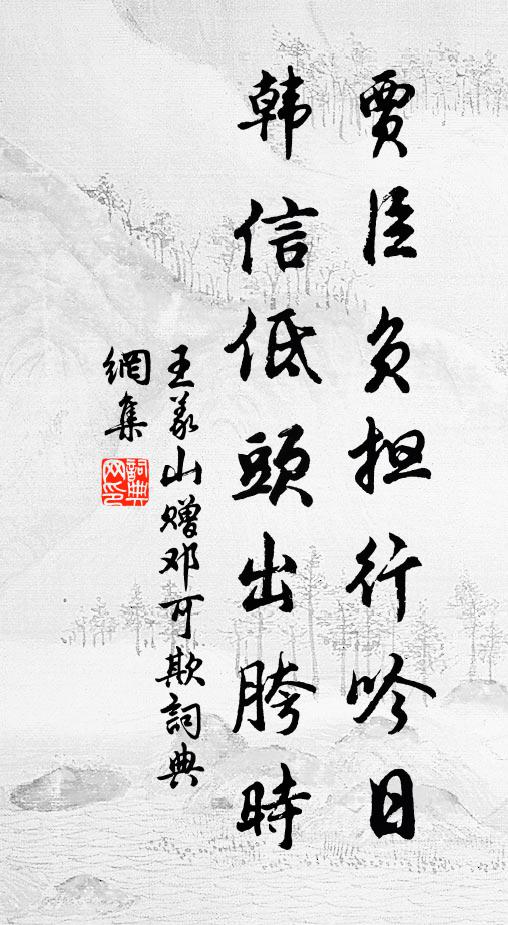 贾臣负担行吟日
韩信低頭出胯時
王义山赠邓可欺詞典
網集
詞典
网印